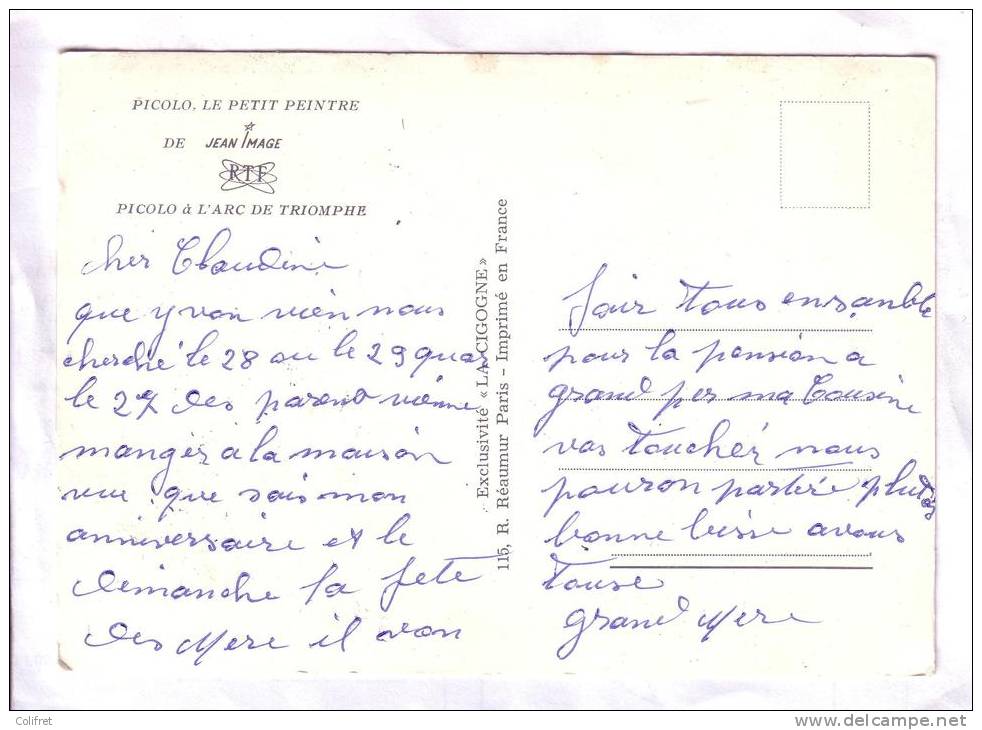 PICOLO, LE PETIT PEINTRE
DE JEAN IMAGE
RTF
PICOLO à L'ARC DE TRIOMPHE
cher Claudine
que yvon vien nous
cherché le 28 ou le 29 quar
le 27 des parent vienne
manger a la maison
vue que sais mon
anniversaire et le
dimanche la fete
des Mere il von
Exclusivité «LA CIGOGNE»
115, R. Réaumur Paris - Imprimé en France
fair tous ensanble
pour la pension a
grand per ma Cousine
vas touchér nous
pouron partire plus
bonne bisse avous
touse
grand Mere
Colifret
www.delcampe.net